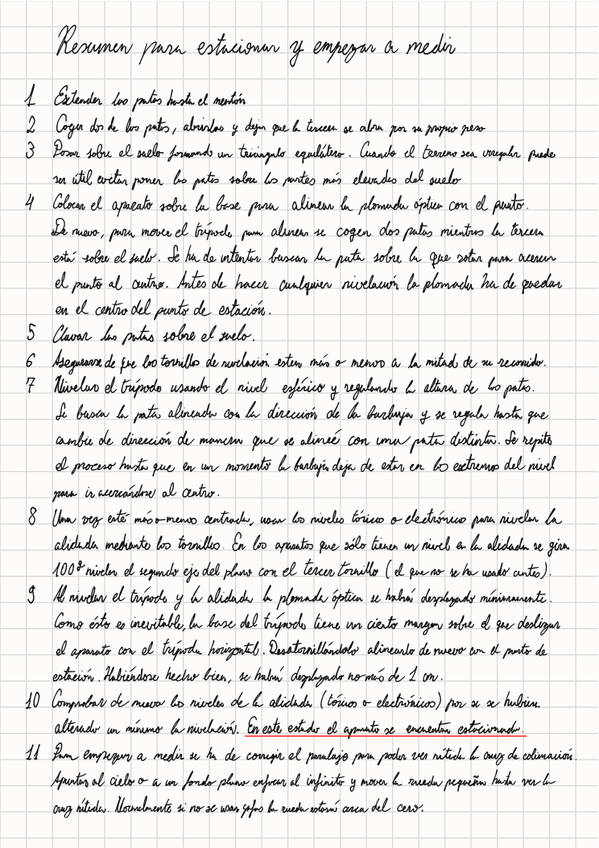 Resumen para estacionar y empezar a medir
1 Extender las patas hasta el mentón
2 Coger dos de las patas, abrirlas y dejar que la tercera se abra por su propio peso
3 Posar sobre el suelo formando un triángulo equilátero. Cuando el terreno sea irregular puede
ser útil evitar poner las patas sobre las partes más elevadas del suelo
4 Colocar el aparato sobre la base para alinear la plomada óptica con el punto.
De nuevo, para mover el trípode para alinear se cogen dos patas mientras la tercera
está sobre el suelo. Se ha de intentar buscar la pata sobre la que rotar para acercar
el punto al centro. Antes de hacer cualquier nivelación la plomada ha de quedar
en el centro del punto de estación.
5 Clavar las patas sobre el suelo.
6 Asegurarse de que los tornillos de nivelación esten más o menos a la mitad de su recorrido.
7 Nivelar el trípode usando el nivel esférico y regulando la altura de las patas.
Se busca la pata alineada con la dirección de la burbuja y se regula hasta que
cambie de dirección de manera que se alineé con una pata distinta. Se repite
el proceso hasta que en un momento la burbuja deja de estar en los extremos del nivel
para ir acercándose al centro.
8 Una vez esté más o menos centrada, usar los niveles tóricos o electrónico para nivelar la
alidada mediante los tornillos. En los aparatos que sólo tienen un nivel en la alidada se gira
100g nivelar el segundo eje del plano con el tercer tornillo (el que no se ha usado antes).
9 Al nivelar el trípode y la alidada la plomada óptica se habrá desplazado mínimamente.
Como ésto es inevitable, la base del trípode tiene un cierto margen sobre el que deslizar
el aparato con el trípode horizontal. Desatornillándolo alinearlo de nuevo con el punto de
estación. Habiéndose hecho bien, se habrá desplazado no más de 1 cm.
10 Comprobar de nuevo los niveles de la alidada (tóricos o electrónicos) por si se hubiera
alterado un mínimo la nivelación. En este estado el aparato se encuentra estacionado.
11 Para empezar a medir se ha de corregir el paralaje para poder ver nítida la cruz de colimación.
Apuntar al cielo o a un fondo plano enfocar al infinito y mover la rueda pequeña hasta ver la
cruz nítida. Normalmente si no se usan gafas la rueda estará cerca del cero.